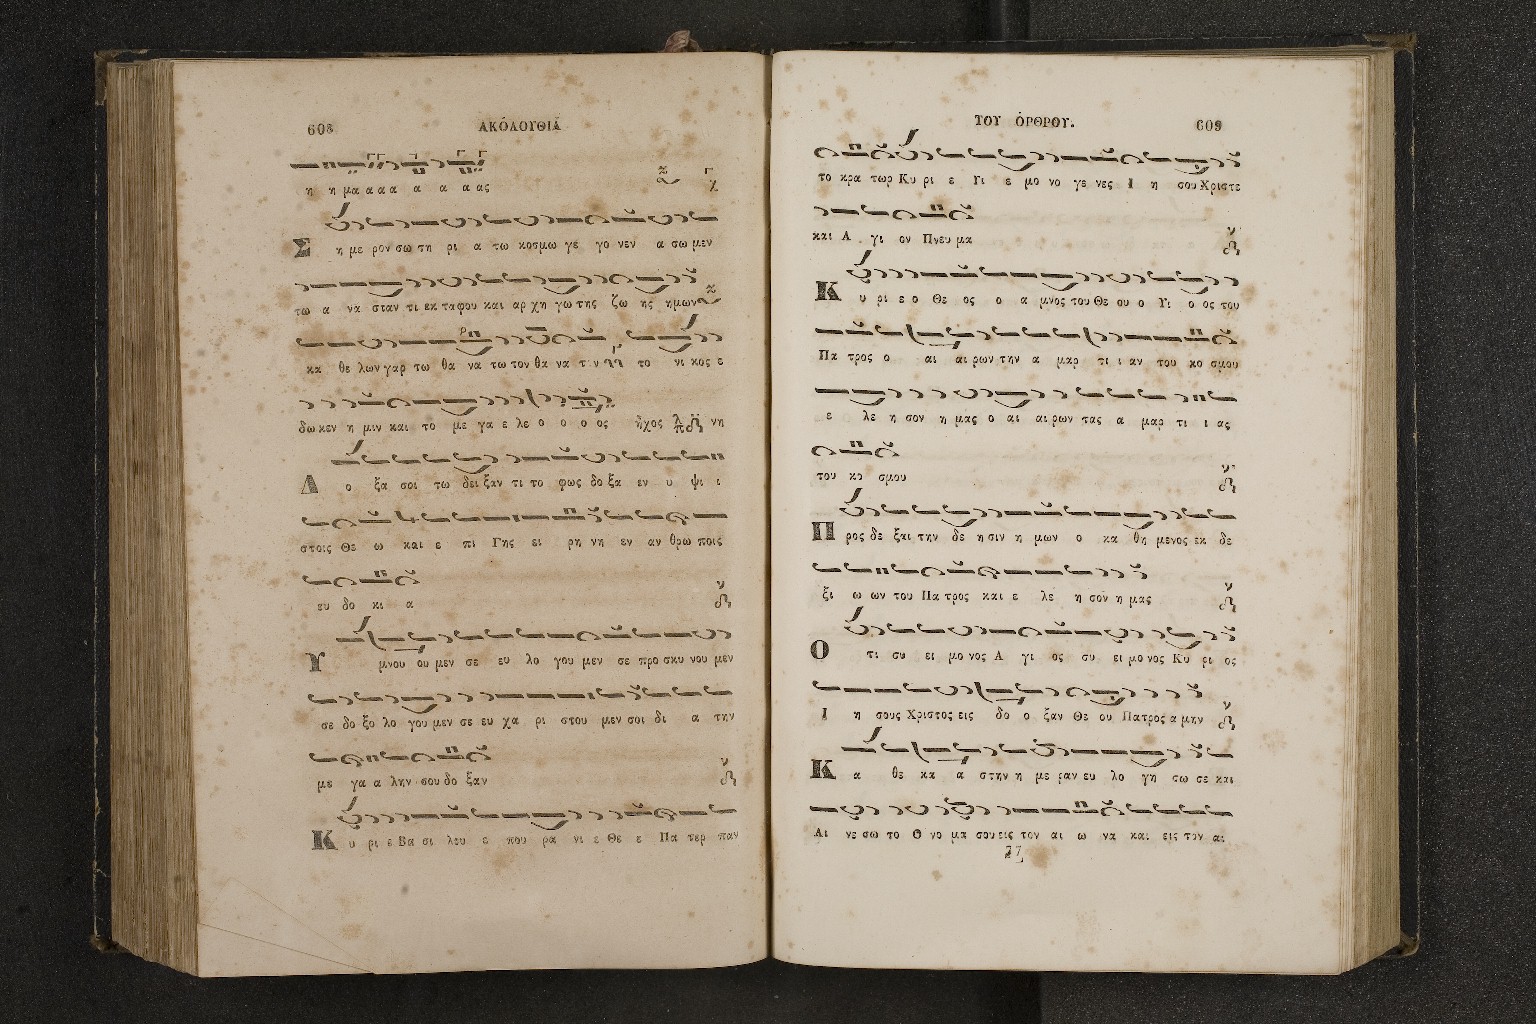 608 ΑΚΟΛΟΥΘΙΑ
η η μα α α α α α α ας
Σ η με ρον σω τη ρι α τω κοσμω γε γο νεν α σω μεν
τω α να σταν τι εκ ταφου και αρ χη γω της ζω ης ημων
κα θε λων γαρ τω θα να τω τον θα να τον το νι κος ε
δω κεν η μιν και το με γα ε λε ο ο ο ος ἦχος νη
Δ ο ξα σοι τω δει ξαν τι το φως δο ξα εν υ ψι ι
στοις Θε ω και ε πι Γης ει ρη νη εν αν θρω ποις
ευ δο κι α
Υ μνου ου μεν σε ευ λο γου μεν σε προ σκυ νου μεν
σε δο ξο λο γου μεν σε ευ χα ρι στου μεν σοι δι α την
με γα α λην σου δο ξαν
Κ υ ρι ε Βα σι λευ ε που ρα νι ε Θε ε Πα τερ παν
ΤΟΥ ΟΡΘΡΟΥ. 609
το κρα τωρ Κυ ρι ε Υι ε μο νο γε νες Ι η σου Χριστε
και Α γι ον Πνευ μα
Κ υ ρι ε ο Θε ος ο α μνος του Θε ου ο Υι ο ος του
Πα τρος ο αι αι ρων την α μαρ τι ι αν του κο σμου
ε λε η σον η μας ο αι αι ρων τας α μαρ τι ι ας
του κο σμου
Π ρος δε ξαι την δε η σιν η μων ο κα θη μενος εκ δε
ξι ω ων του Πα τρος και ε λε η σον η μας
Ο τι συ ει μο νος Α γι ος συ ει μο νος Κυ ρι ος
Ι η σους Χριστος εις δο ο ξαν Θε ου Πατρος α μην
Κ α θε κα α στην η με ραν ευ λο γη σω σε και
Αι νε σω το Ο νο μα σου εις τον αι ω να και εις τον αι
77